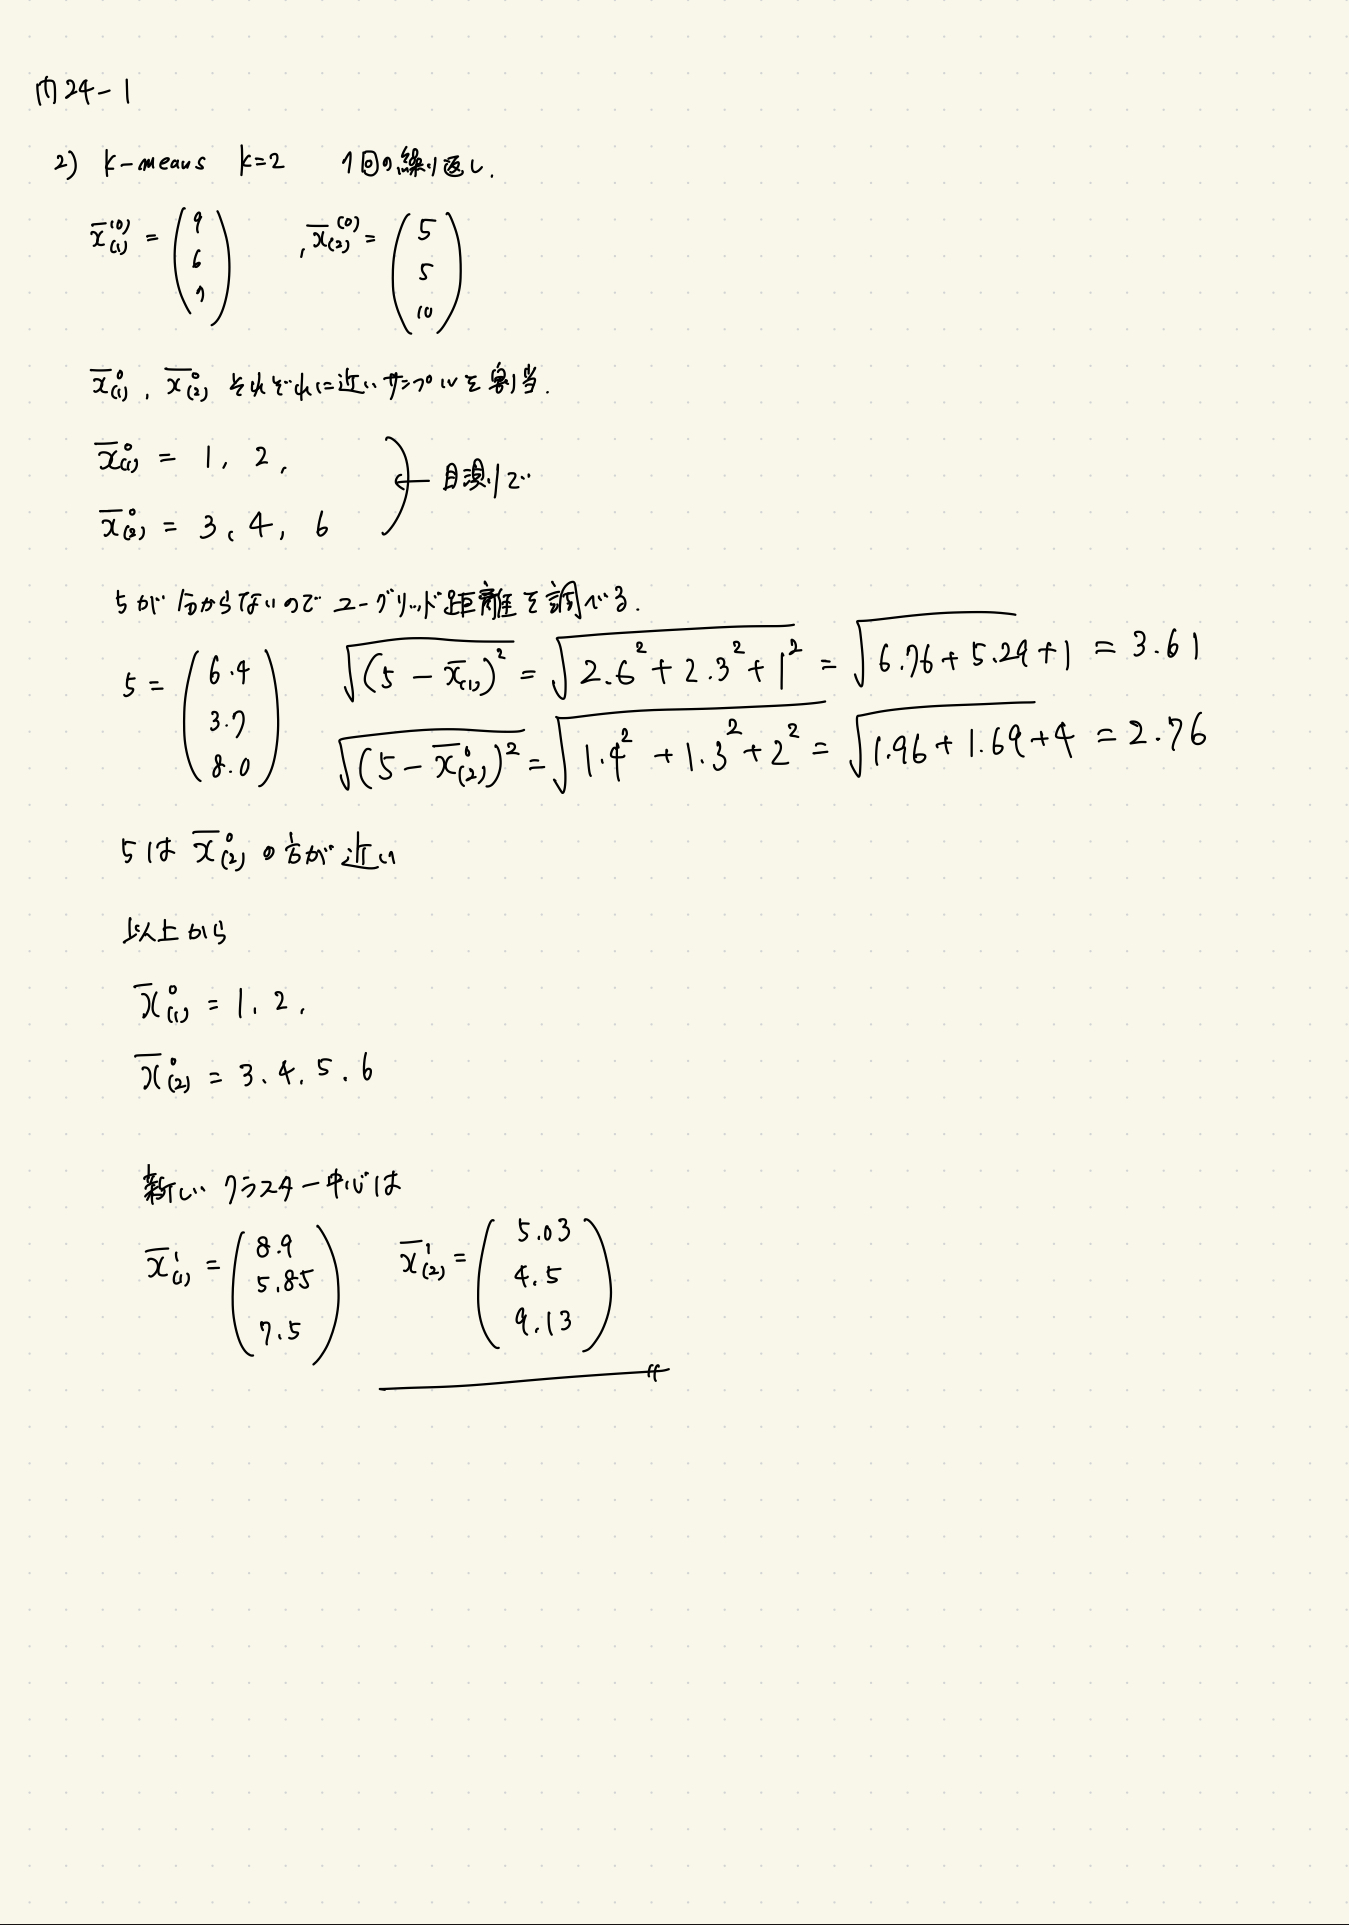 問24-1
2) k-means k=2 1回の繰り返し.
x̄₍₁₎⁽⁰⁾ = (9 6 7) , x̄₍₂₎⁽⁰⁾ = (5 5 10)
x̄₍₁₎⁰, x̄₍₂₎⁰ それぞれに近いサンプルを割当.
x̄₍₁₎⁰ = 1, 2,
x̄₍₂₎⁰ = 3, 4, 6
← 目測で
5が分からないのでユークリッド距離を調べる.
5 = (6.4 3.7 8.0)
√(5 - x̄₍₁₎)² = √2.6² + 2.3² + 1² = √6.76 + 5.29 + 1 = 3.61
√(5 - x̄₍₂₎⁰)² = √1.4² + 1.3² + 2² = √1.96 + 1.69 + 4 = 2.76
5は x̄₍₂₎⁰ の方が近い
以上から
x̄₍₁₎⁰ = 1, 2,
x̄₍₂₎⁰ = 3. 4. 5. 6
新しいクラスター中心は
x̄₍₁₎¹ = (8.9 5.85 7.5) x̄₍₂₎¹ = (5.03 4.5 9.13)